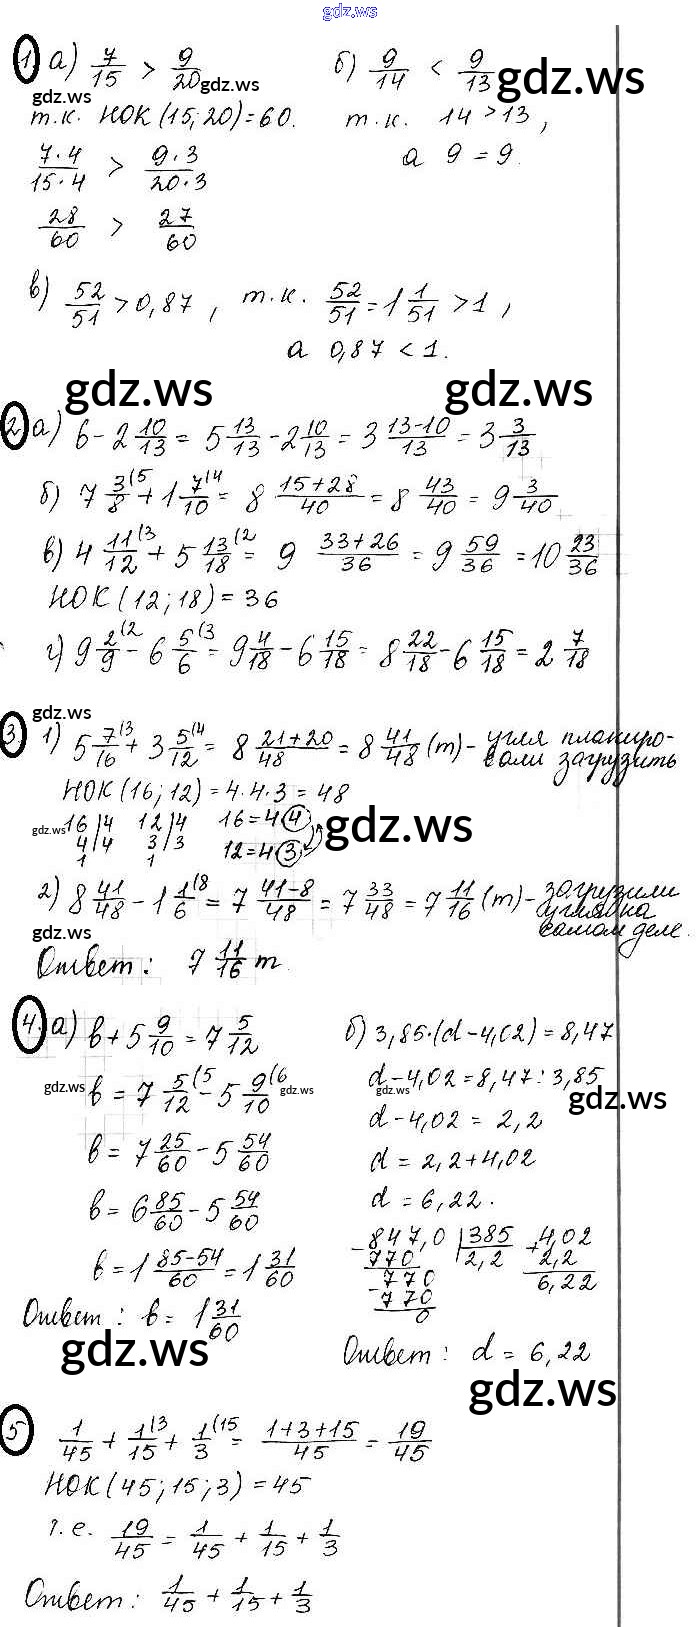 gdz.ws
1. а) 7/15 > 9/20 gdz.ws б) 9/14 < 9/13 gdz.ws
gdz.ws
т.к. НОК (15; 20) = 60. т.к. 14 > 13,
7·4/15·4 > 9·3/20·3 а 9 = 9.
28/60 > 27/60
в) 52/51 > 0,87, т.к. 52/51 = 1 1/51 > 1,
а 0,87 < 1.
gdz.ws gdz.ws
2. а) 6 - 2 10/13 = 5 13/13 - 2 10/13 = 3 13-10/13 = 3 3/13
б) 7 3/8 (5 + 1 7/10 (4 = 8 15+28/40 = 8 43/40 = 9 3/40
в) 4 11/12 (3 + 5 13/18 (2 = 9 33+26/36 = 9 59/36 = 10 23/36
НОК (12; 18) = 36
г) 9 2/9 (2 - 6 5/6 (3 = 9 4/18 - 6 15/18 = 8 22/18 - 6 15/18 = 2 7/18
gdz.ws
3. 1) 5 7/16 (3 + 3 5/12 (4 = 8 21+20/48 = 8 41/48 (т) - угля планиро-
вали загрузить
НОК (16; 12) = 4·4·3 = 48
gdz.ws 16|4 12|4 16=4·4 gdz.ws
4|4 3|3 12=4·3
1 1
2) 8 41/48 - 1 1/6 (8 = 7 41-8/48 = 7 33/48 = 7 11/16 (т) - загрузили
угля на
самом деле.
gdz.ws
Ответ: 7 11/16 т.
4. а) в + 5 9/10 = 7 5/12 б) 3,85·(d - 4,02) = 8,47
gdz.ws в = 7 5/12 (5 - 5 9/10 (6 gdz.ws d - 4,02 = 8,47 : 3,85
gdz.ws gdz.ws
в = 7 25/60 - 5 54/60 d - 4,02 = 2,2
d = 2,2 + 4,02
в = 6 85/60 - 5 54/60 d = 6,22.
в = 1 85-54/60 = 1 31/60 - 847,0 |385 + 4,02
770 2,2 2,2
- 770 6,22
770
0
Ответ: в = 1 31/60
gdz.ws Ответ: d = 6,22
gdz.ws
5 1/45 + 1/15 (3 + 1/3 (15 = 1+3+15/45 = 19/45
НОК (45; 15; 3) = 45
т.е. 19/45 = 1/45 + 1/15 + 1/3
Ответ: 1/45 + 1/15 + 1/3